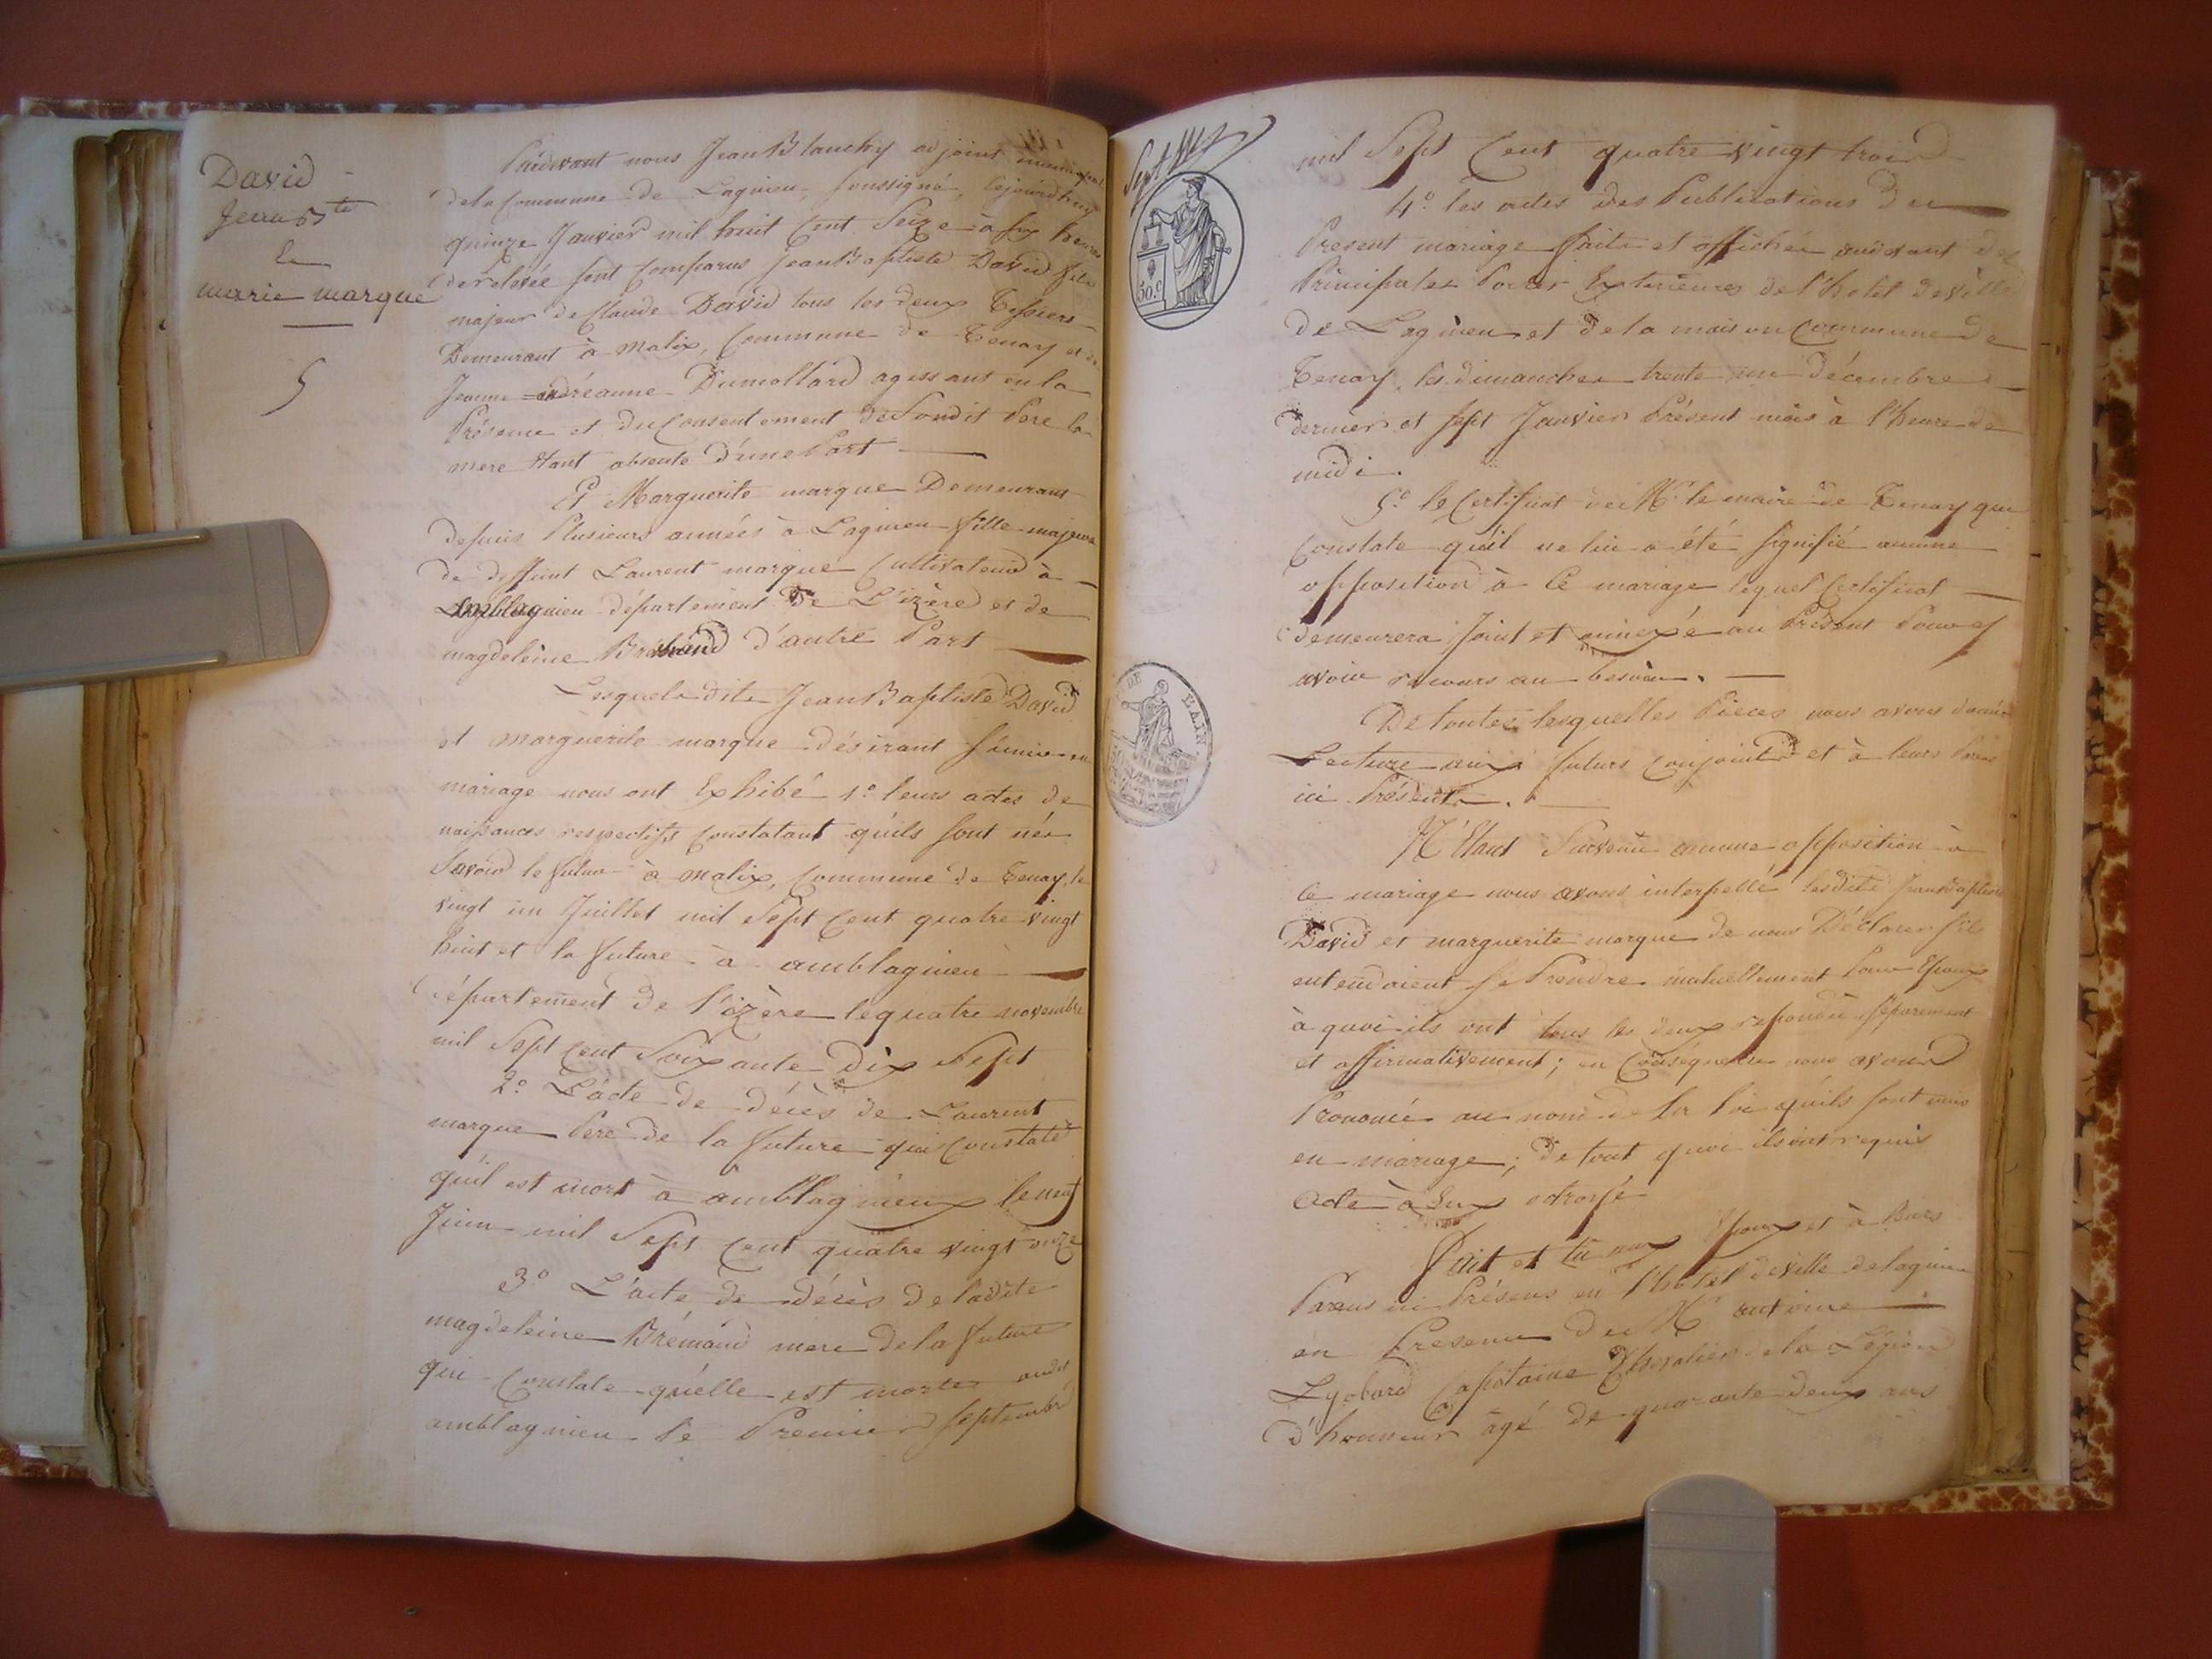 David
Jean Bte
&
marie marque
5
Pardevant nous Jean Blanchy adjoint municipal
de la Commune de Lagnieu, soussigné, cejourdhuy
quinze Janvier mil huit Cent Seize à six heures
de relevée sont Comparus Jean Baptiste David fils
majeur de Claude David tous les deux Tessiers
Demeurant à malix, Commune de Tenay et de
Jeanne andréanne Dumollard agissant en la
Présence et du Consentement de Sondit Pere la
mere étant absente d'une Part
Et Marguerite marque Demeurant
depuis Plusieurs années à Lagnieu fille majeure
de deffunt Laurent marque Cultivateur à
amblagnieu département De L'izère et de
magdeleine d'autre Part
Lesquels dits Jean Baptiste David
et marguerite marque désirant s'unir en
mariage nous ont Exhibé 1.º leurs actes de
naissances respectifs Constatant qu'ils sont nés
Savoir le futur à malix, Commune de Tenay, le
vingt un Juillet mil Sept Cent quatre vingt
huit et la future à amblagnieu
département de l'izère le quatre novembre
mil Sept Cent Soixante Dix Sept
2.º L'acte de décès de Laurent
marque Pere de la future qui Constate
qu'il est mort à amblagnieux le neuf
Juin mil Sept Cent quatre vingt onze
3.º L'acte de décès de ladite
magdeleine Brémand mere de la future
qui Constate qu'elle est morte audit
amblagnieu le Premier Septembre
Sept
50.C
DE L'AIN.
mil Sept Cent quatre vingt trois
4.º les actes des Publications du
Présent mariage faite et affichée audevant des
Principales Portes Extérieures de l'hotel de ville
de Lagnieu et de la maison Commune de
Tenay, les dimanches trente un décembre
dernier et sept Janvier Présent mois à l'heure de
midi.
5.º le Certificat de Mr. le maire de Tenay qui
Constate qu'il ne lui a été signifié aucune
opposition à Ce mariage lequel Certificat
demeurera Joint et annexé au Présent Pour y
avoir recours au besoin.
De toutes lesquelles Pièces nous avons donné
Lecture aux futurs Conjoints et à leurs Parens
ici Présents.
N'Etant Survenu aucune opposition à
Ce mariage nous avons interpellé lesdits Jean Baptiste
David et marguerite marque de nous Déclarer s'ils
entendaient se Prendre mutuellement Pour Epoux
à quoi ils ont tous les deux repondu séparement
et affirmativement; en Conséquence nous avons
Prononcé au nom de la loi qu'ils sont unis
en mariage; de tout quoi ils ont requis
acte à Eux octroyé
Fait et lu aux Epoux et à leurs
Parens ici Présens en l'hotel de ville de lagnieu
en Presence de Mr antoine
Lyobard Capitaine Chevalier de la Légion
d'honneur âgé de quarante deux ans